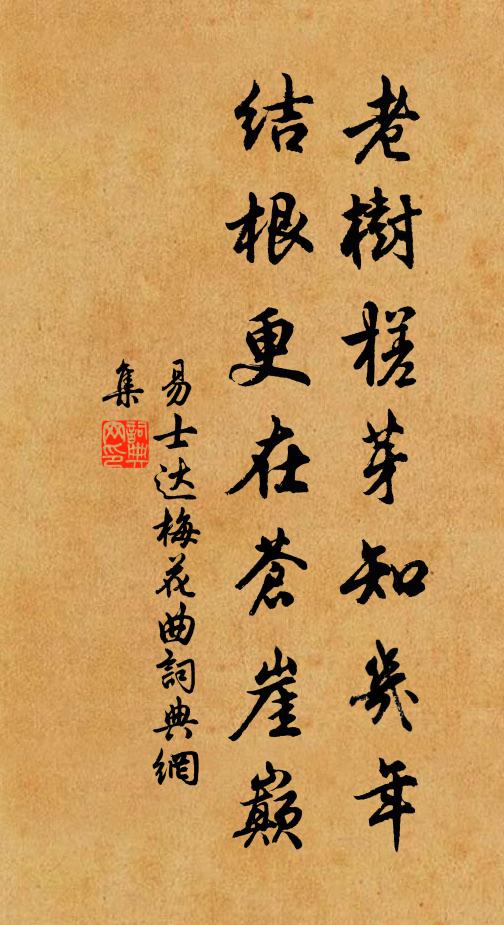 老樹槎芽知幾年
结根更在蒼崖巔
易士达梅花曲詞典網
集
詞典网印